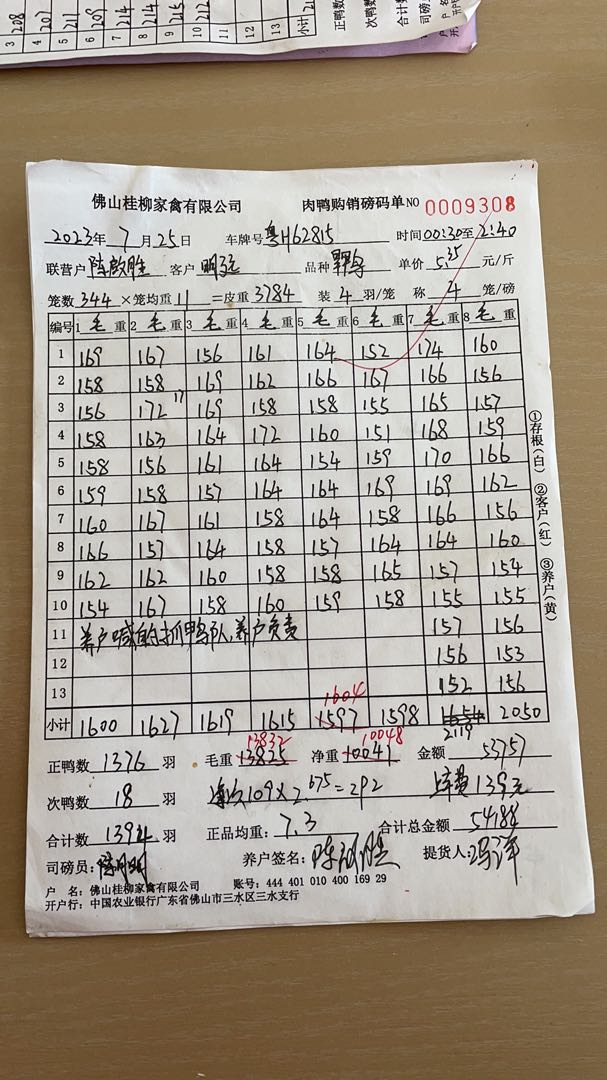 3 208
4 207
5 211
6 209
7 214
8 214
9 215
10 212
11
12
13
小计
正鸭数
次鸭数
合计数
司磅
佛山桂柳家禽有限公司 肉鸭购销磅码单NO 0009308
2023年 7月25日 车牌号 粤H62815 时间00:30至2:40
联营户 陈啟胜 客户 明远 品种 单价 5.35 元/斤
笼数 344 ×笼均重 11 =皮重 3784 装 4 羽/笼 称 4 笼/磅
编号 1 毛重 2 毛重 3 毛重 4 毛重 5 毛重 6 毛重 7 毛重 8 毛重
1 169 167 156 161 164 152 174 160
2 158 158 169 162 166 167 166 156
3 156 172 17 169 158 158 155 165 157
4 158 163 164 172 160 151 168 159
5 158 156 161 164 154 159 170 166
6 159 158 157 164 164 169 169 162
7 160 167 161 158 164 158 166 156
8 166 157 164 158 157 164 164 160
9 162 162 160 158 158 165 157 154
10 154 167 158 160 159 158 155 155
11 养户喊的抓鸭队,养户负责 157 156
12 156 153
13 152 156
1604
小计 1600 1627 1619 1615 1597 1598 1654 2050
2119
13832 10048
正鸭数 1376 羽 毛重 13825 净重 10041 金额 53757
次鸭数 18 羽 109×2.675=292 139元
合计数 1394 羽 正品均重: 7.3 合计总金额 54188
司磅员: 养户签名: 陈啟胜 提货人:冯洋
户 名:佛山桂柳家禽有限公司 账号:444 401 010 400 169 29
开户行:中国农业银行广东省佛山市三水区三水支行
①存根(白) ②客户(红) ③养户(黄)